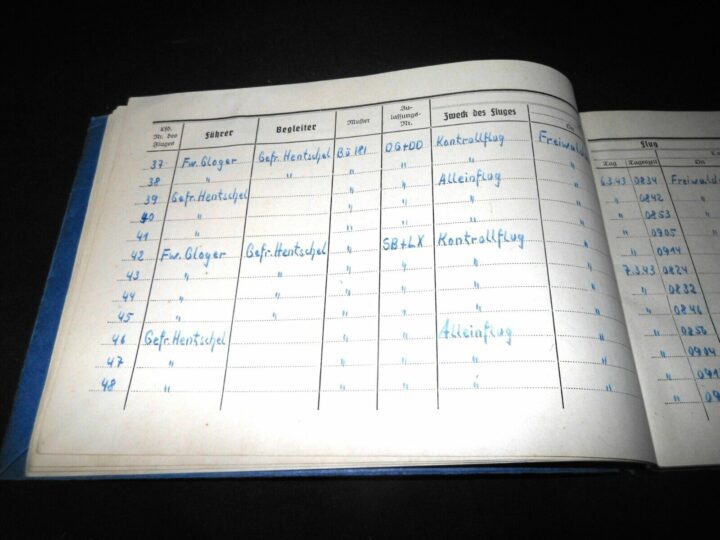 Lfd. Nr. des Fluges Führer Begleiter Muster Zu-lassungs-Nr. Zweck des Fluges
Flug
Tag Tageszeit
37 Fw. Gloger Gefr. Hentschel Bü 181 DG+DD Kontrollflug Freiwald 6.3.43 0834 Freiwald
38 " " " " " " " 0842
39 Gefr. Hentschel " " Alleinflug " " 0853
40 " " " " " " 0905
41 " " " " " " 0914
42 Fw. Gloger Gefr. Hentschel " SB+LX Kontrollflug " 7.3.43 0824
43 " " " " " " " 0832
44 " " " " " " " 0846
45 " " " " " " " 0856
46 Gefr. Hentschel " " Alleinflug " " 0904
47 " " " " " "
48 " " " " " "